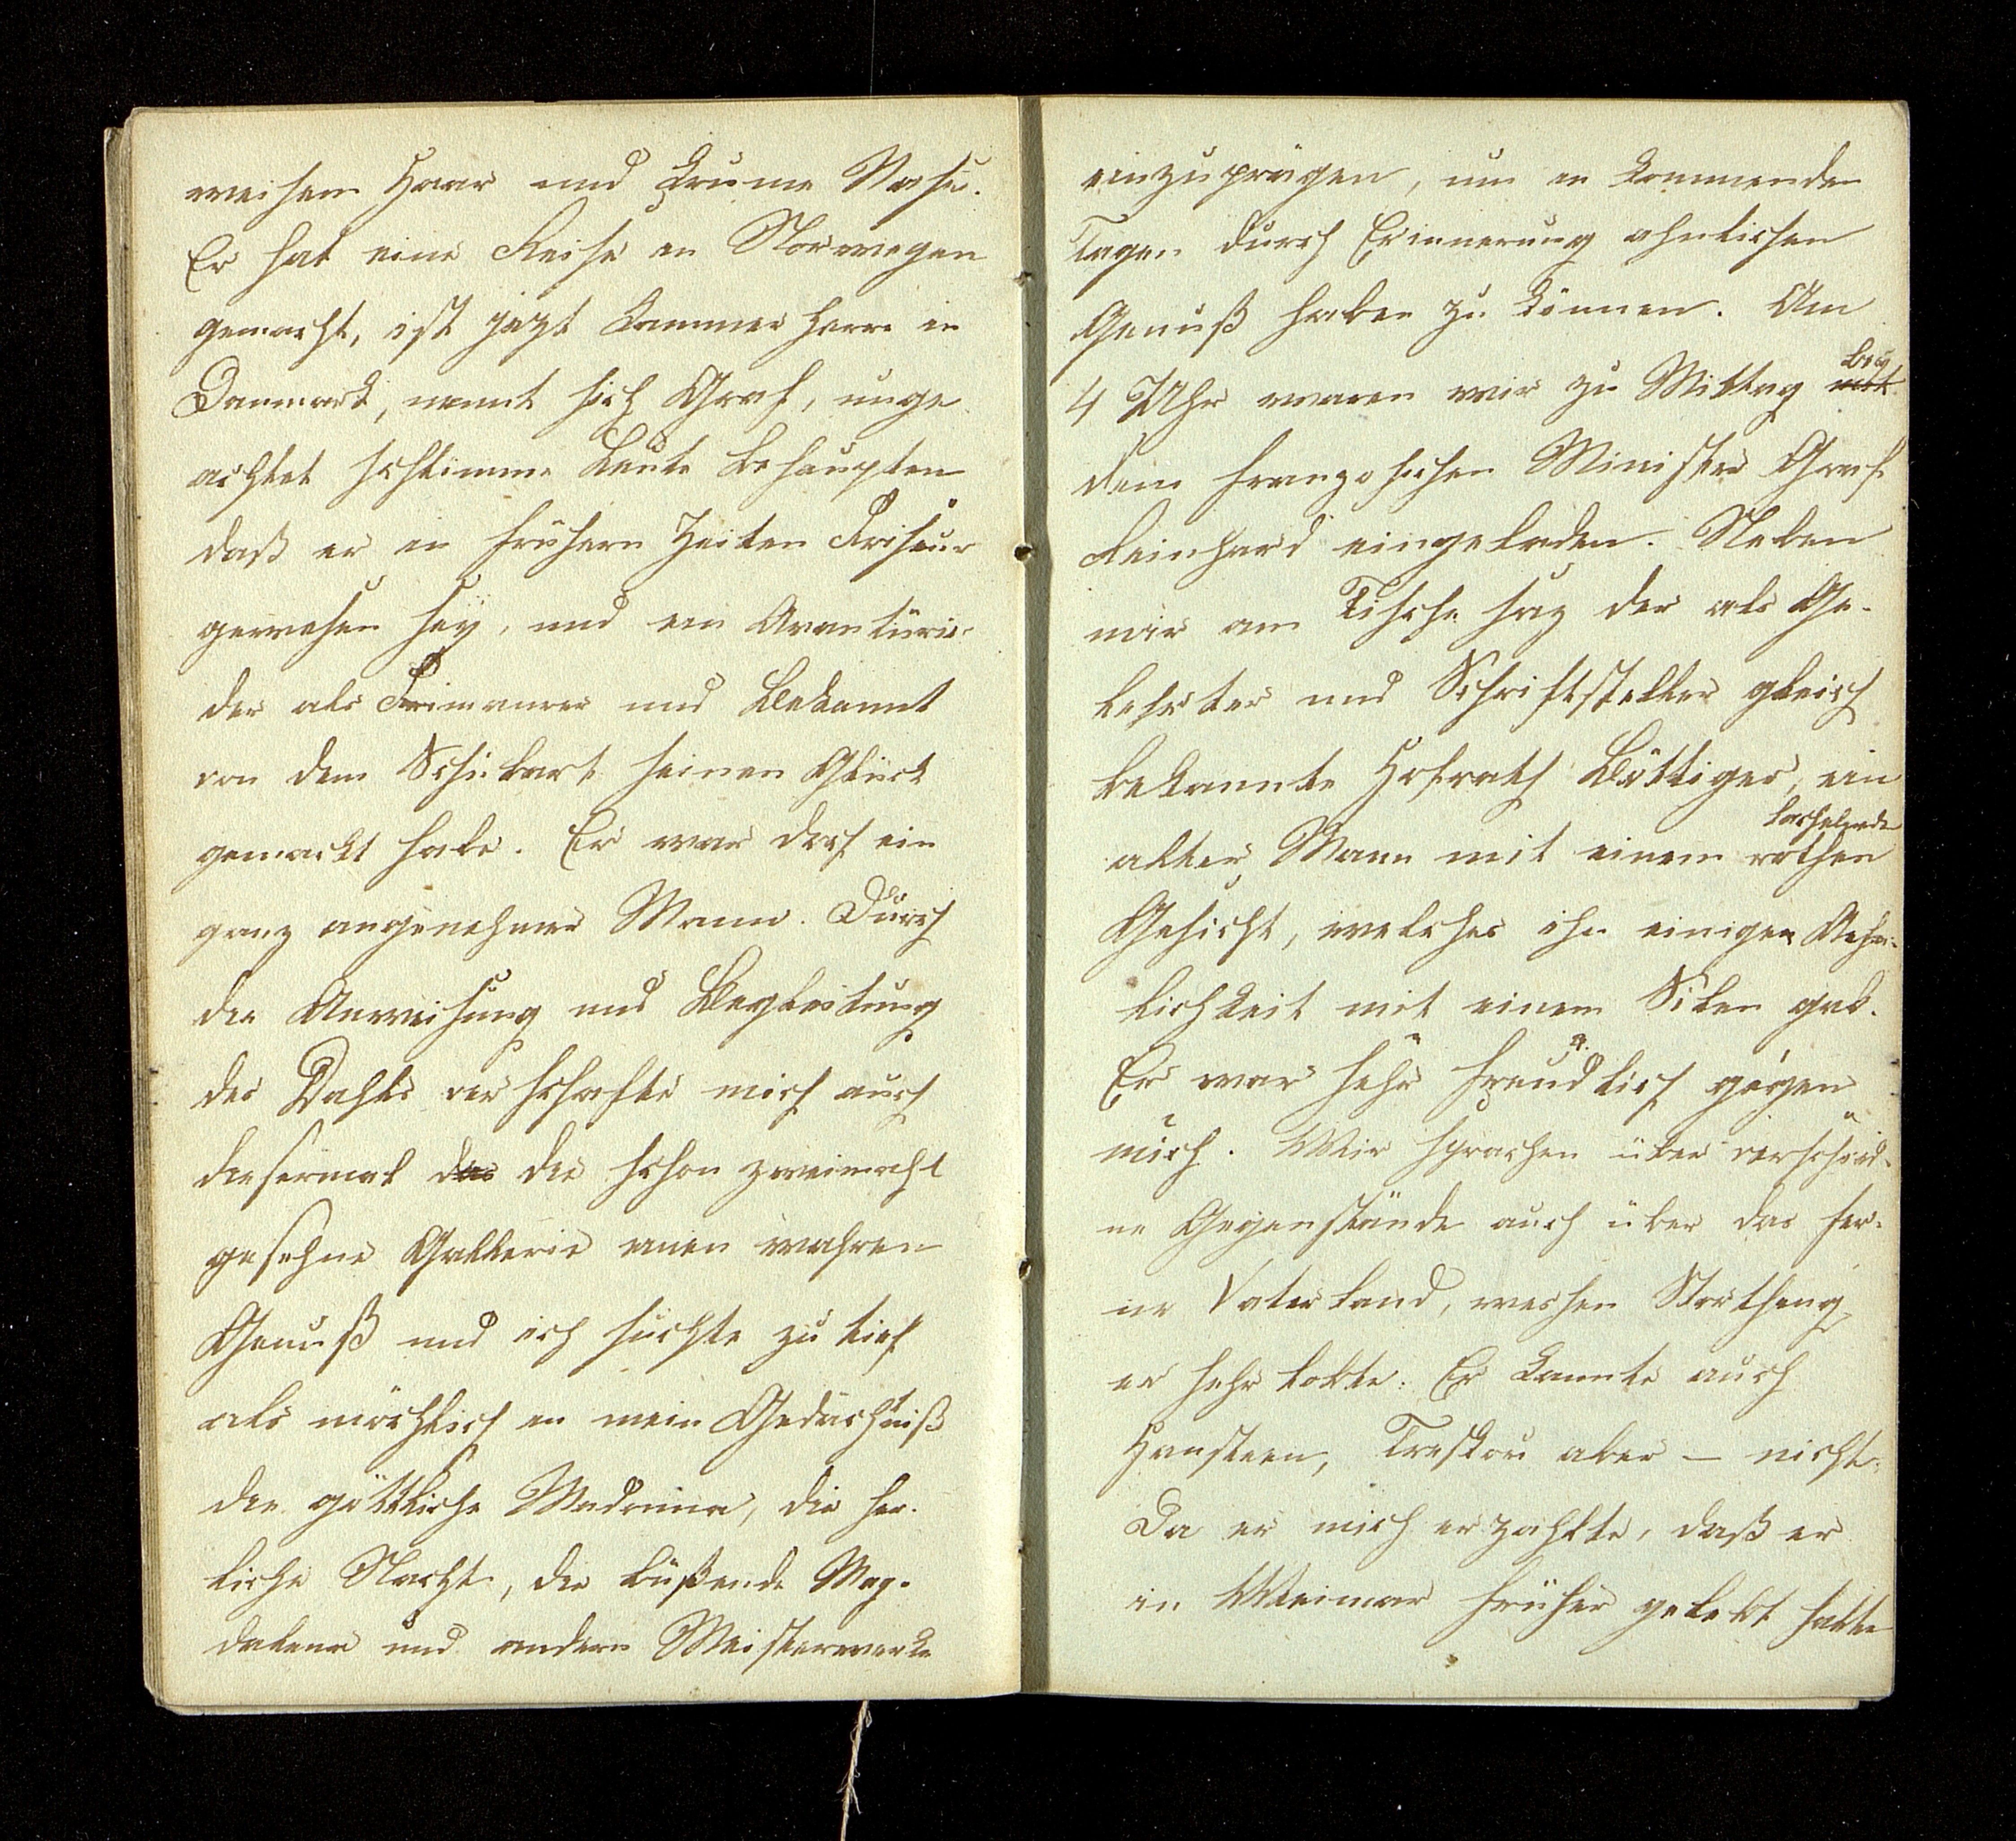 weisem Haar und krume Nase.
Er hat eine Reise in Norwegen
gemacht, ist jezt Kammer Herre in
Danmark, nennt sich Graf, unge
achtet schlimme Leute behaupten
daß er in frühern Zeiten Friseur
gewesen sey, und ein Avantürie
der als Frimaurer und Bekannt
von dem Schubart seinen Glück
gemackt habe. Er war doch ein
ganz angenehmer Mann. Durch
die Anweisung und Begleitung
des Dahls verschafte mich auch
diesermal das die schon zweimahl
gesehne Gallerie einen wahren
Genuß und ich suchte zu tief
als möchlich in mein Gedächtniß
die göttliche Madonna, die her-
liche Nacht, die büßende Mag-
dalena und andern Meisterwerke
einzuprägen, um in kommenden
Tagen durch Erinnerung ahnlichen
Genuß haben zu können. Um
bey
4 Uhr waren wir zu Mittag mit
dem französischen Minister Graf
Reinhard eingeladen. Neben
mir am Tische saz der als Ge-
lehrter und Schriftsteller gleich
bekannte Hofrath Böttiger, ein
lachelnde
alter Mann mit einem rothen
Gesicht, welches ihn einigen Aehn-
lichkeit mit einem Silen gab.
Er war sehr freundlich gegen
mich. Wir sprachen über verschied-
ne Gegenstände auch über das fer-
ne Vaterland, weshen Storthing
er sehr lobte. Er kannte auch
Hansteen, Treskow aber – nicht.
Da er mich erzahlte, daß er
in Weimar früher gelebt hatte